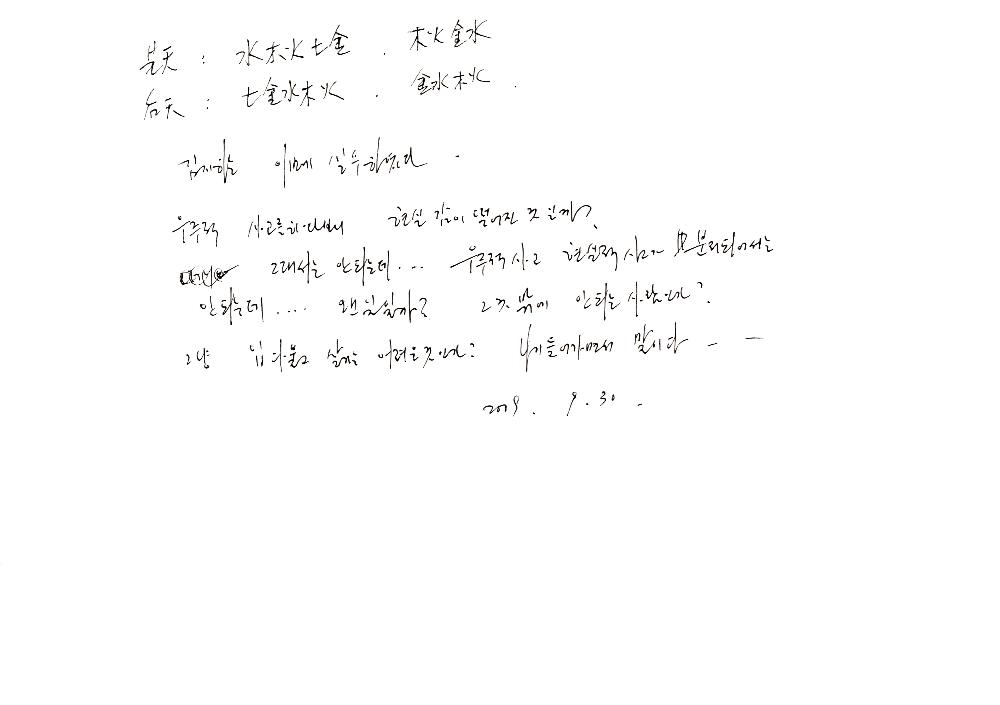 先天 : 水木火土金 . 木火金水
后天 : 土金水木火 . 金水木火 .
김지하는 이미 실수하였다 .
우주적 사고를 하다보니 현실 감이 떨어진 것일까?
그래서는 안되는데... 우주적 사고 현실적 사고가 분리되어서는
안되는데 .... 왜일까? 그것 밖에 안되는 사람인가?
그냥 입 다물고 살기는 어려운 것인가? 나이 들어가면서 말이다 - -
2009 . 9 . 30 .